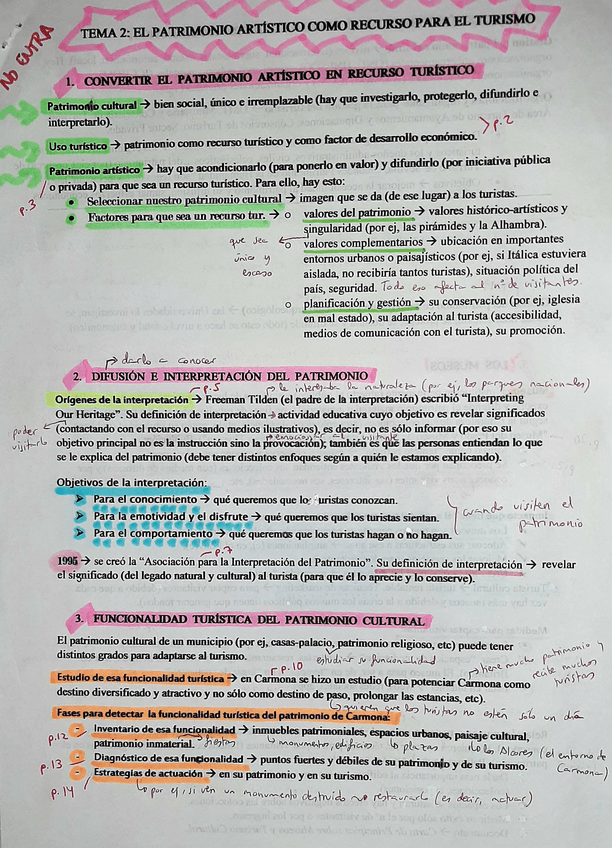 NO ENTRA
TEMA 2: EL PATRIMONIO ARTÍSTICO COMO RECURSO PARA EL TURISMO
1. CONVERTIR EL PATRIMONIO ARTÍSTICO EN RECURSO TURÍSTICO
Patrimonio cultural → bien social, único e irremplazable (hay que investigarlo, protegerlo, difundirlo e
interpretarlo).
Uso turístico → patrimonio como recurso turístico y como factor de desarrollo económico. > p.2
Patrimonio artístico → hay que acondicionarlo (para ponerlo en valor) y difundirlo (por iniciativa pública
o privada) para que sea un recurso turístico. Para ello, hay esto:
p.3
• Seleccionar nuestro patrimonio cultural → imagen que se da (de ese lugar) a los turistas.
• Factores para que sea un recurso tur. → o valores del patrimonio → valores histórico-artísticos y
singularidad (por ej, las pirámides y la Alhambra).
que sea único y escaso
o valores complementarios → ubicación en importantes
entornos urbanos o paisajísticos (por ej, si Itálica estuviera
aislada, no recibiría tantos turistas), situación política del
país, seguridad. Todo eso afecta al nº de visitantes.
o planificación y gestión → su conservación (por ej, iglesia
en mal estado), su adaptación al turista (accesibilidad,
medios de comunicación con el turista), su promoción.
→ darlo a conocer
2. DIFUSIÓN E INTERPRETACIÓN DEL PATRIMONIO
p.5 → le interesaba la naturaleza (por ej, los parques nacionales)
Orígenes de la interpretación → Freeman Tilden (el padre de la interpretación) escribió “Interpreting
Our Heritage”. Su definición de interpretación → actividad educativa cuyo objetivo es revelar significados
poder visitarlo
(contactando con el recurso o usando medios ilustrativos), es decir, no es sólo informar (por eso su
emocionar al visitante
objetivo principal no es la instrucción sino la provocación); también es que las personas entiendan lo que
se le explica del patrimonio (debe tener distintos enfoques según a quién le estamos explicando).
Objetivos de la interpretación:
➤ Para el conocimiento → qué queremos que los turistas conozcan.
➤ Para la emotividad y el disfrute → qué queremos que los turistas sientan.
➤ Para el comportamiento → qué queremos que los turistas hagan o no hagan.
cuando visiten el patrimonio
p.7
1995 → se creó la “Asociación para la Interpretación del Patrimonio”. Su definición de interpretación → revelar
el significado (del legado natural y cultural) al turista (para que él lo aprecie y lo conserve).
3. FUNCIONALIDAD TURÍSTICA DEL PATRIMONIO CULTURAL
El patrimonio cultural de un municipio (por ej, casas-palacio, patrimonio religioso, etc) puede tener
distintos grados para adaptarse al turismo.
estudiar su funcionalidad
p.10 → tiene mucho patrimonio y recibe muchos turistas
Estudio de esa funcionalidad turística → en Carmona se hizo un estudio (para potenciar Carmona como
destino diversificado y atractivo y no sólo como destino de paso, prolongar las estancias, etc).
quieren que los turistas no estén sólo un día
Fases para detectar la funcionalidad turística del patrimonio de Carmona:
p.12 - Inventario de esa funcionalidad → inmuebles patrimoniales, espacios urbanos, paisaje cultural,
patrimonio inmaterial. → fiestas monumentos, edificios plazas los Alcores (el entorno de Carmona)
p.13 - Diagnóstico de esa funcionalidad → puntos fuertes y débiles de su patrimonio y de su turismo.
- Estrategias de actuación → en su patrimonio y en su turismo.
p.14
por ej, si ven un monumento destruido → restaurarlo (es decir, actuar)